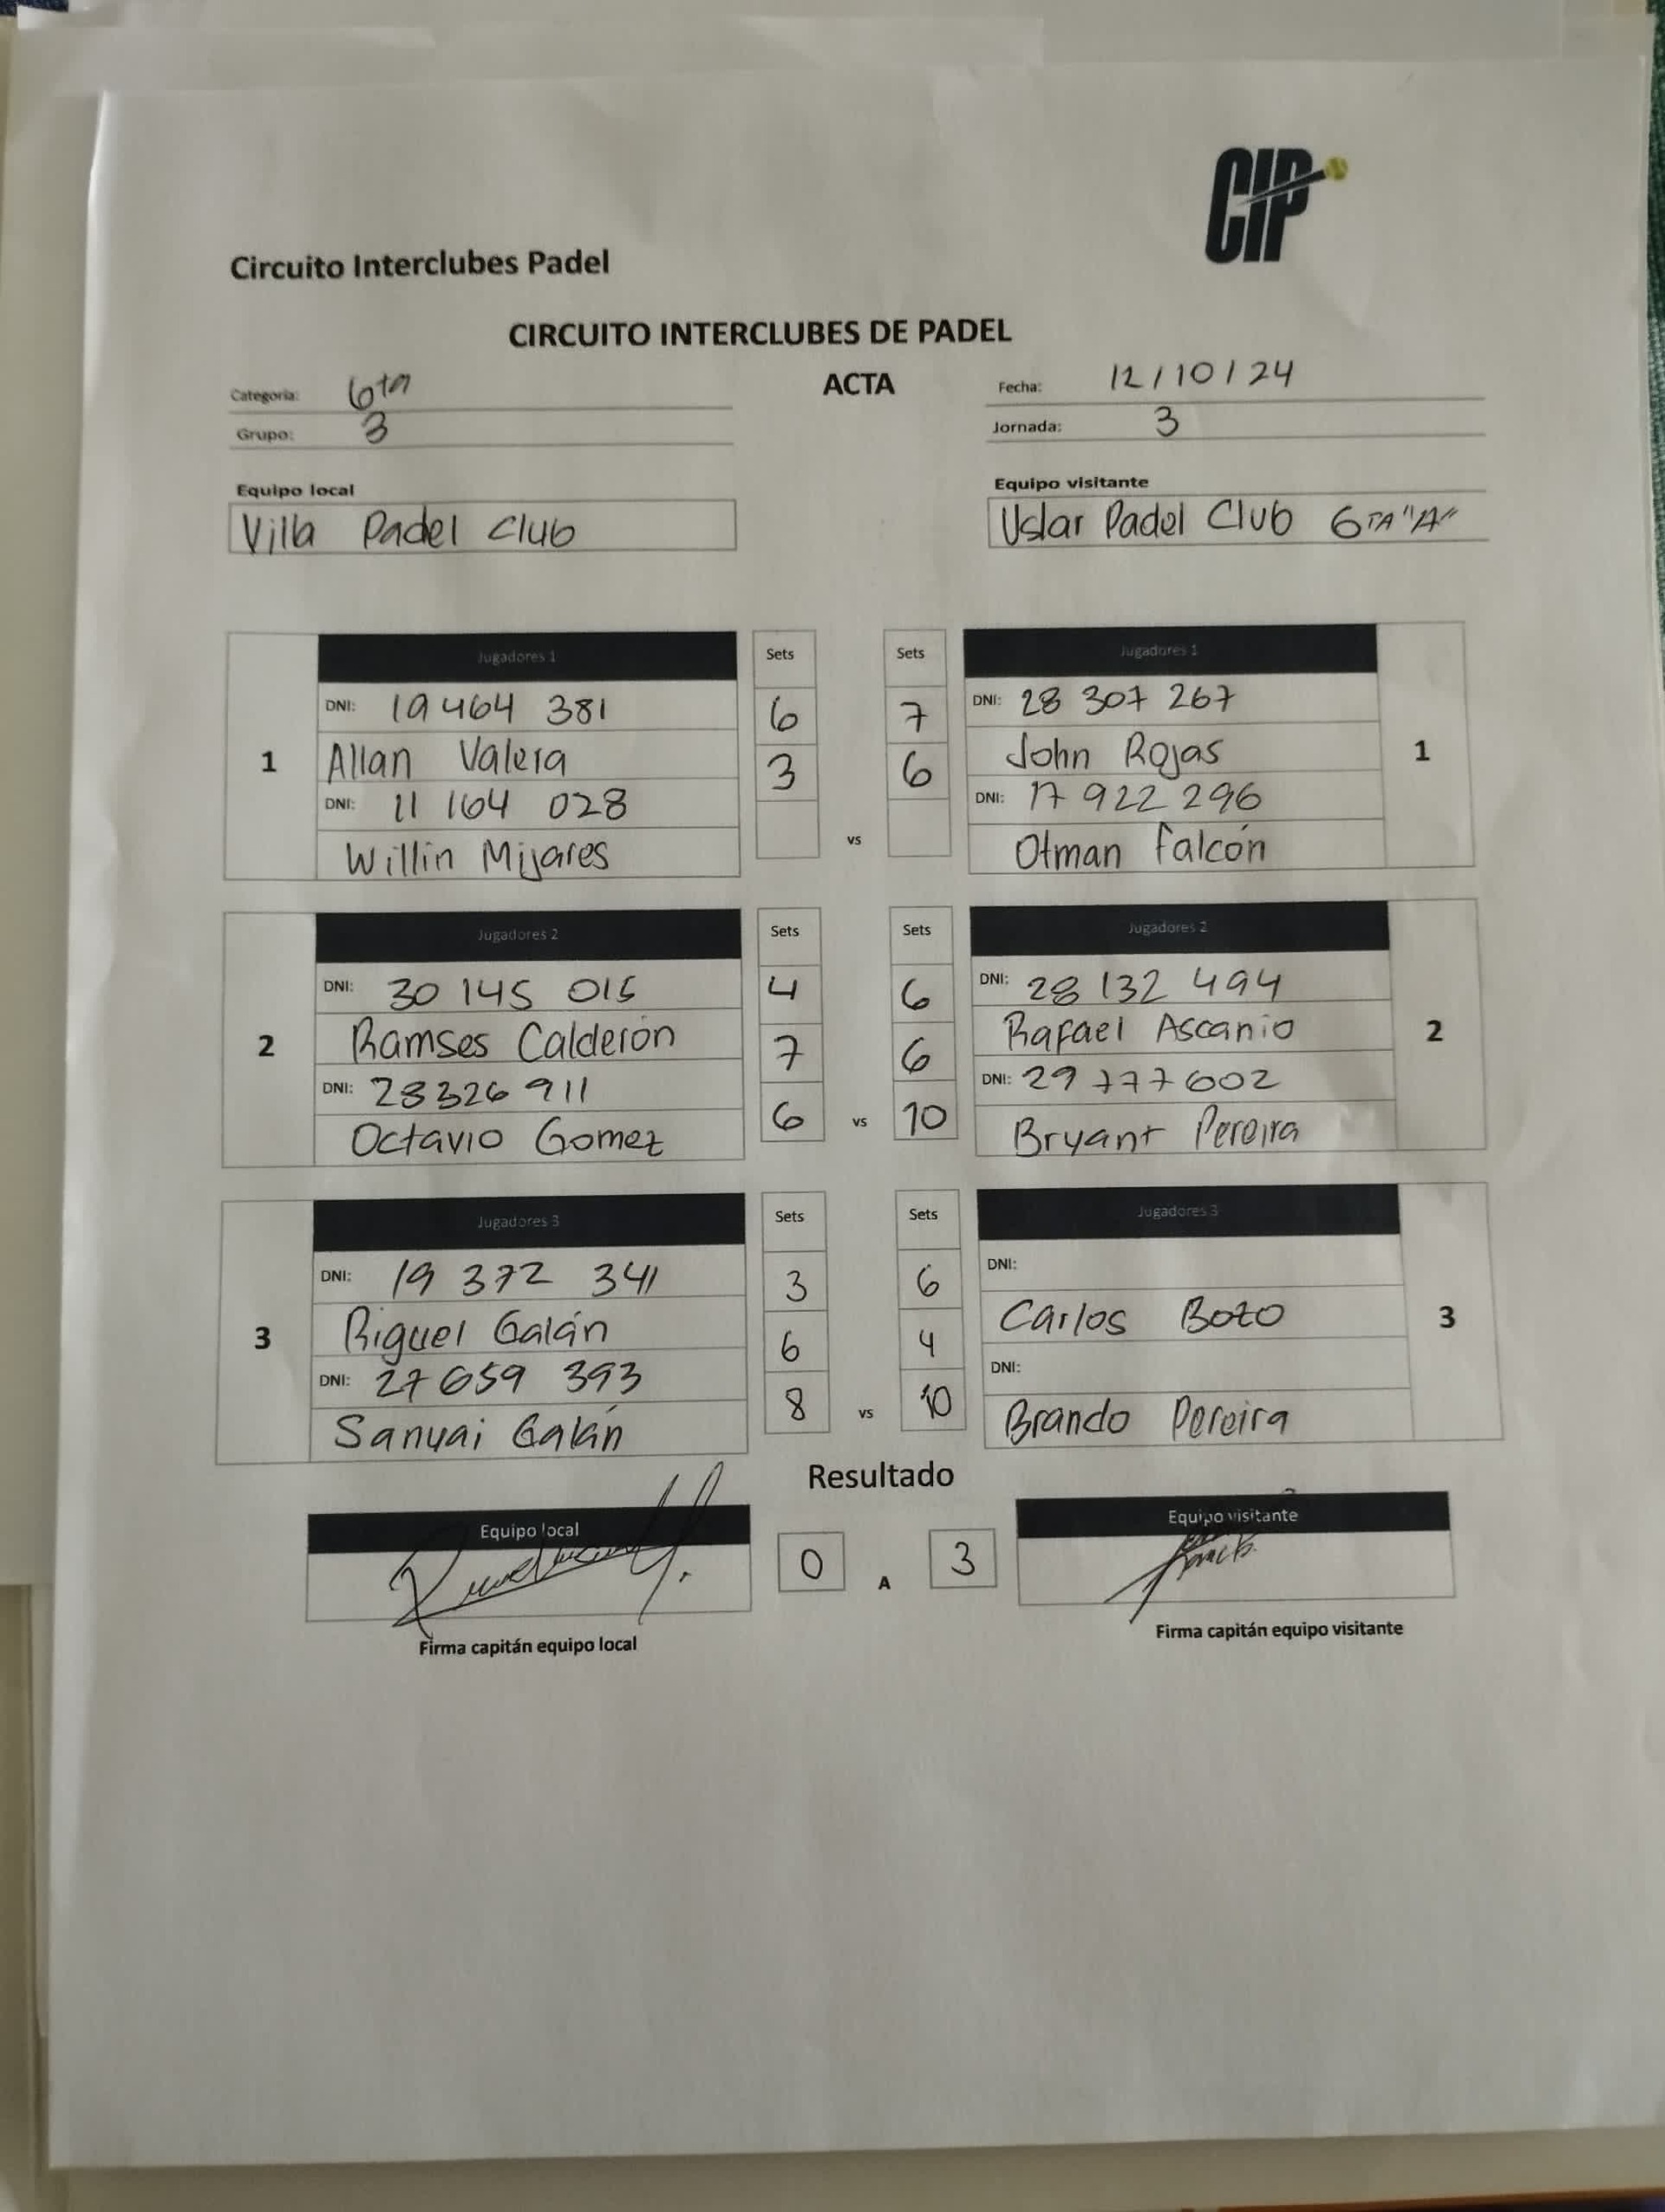 CIP
Circuito Interclubes Padel
CIRCUITO INTERCLUBES DE PADEL
ACTA
Categoria: 6ta
Fecha: 12/10/24
Grupo: 3
Jornada: 3
Equipo local
Equipo visitante
Villa Padel Club
Uslar Padel Club 6TA "A"
Jugadores 1 Sets Sets Jugadores 1
DNI: 19 464 381 6 7 DNI: 28 307 267
1 Allan Valera 3 6 John Rojas 1
DNI: 11 164 028 DNI: 17 922 296
Willin Mijares vs Otman Falcón
Jugadores 2 Sets Sets Jugadores 2
DNI: 30 145 015 4 6 DNI: 28 132 494
2 Ramses Calderón 7 6 Rafael Ascanio 2
DNI: 28326 911 DNI: 29 777602
Octavio Gomez 6 vs 10 Bryant Pereira
Jugadores 3 Sets Sets Jugadores 3
DNI: 19 372 341 3 6 DNI:
3 Riguel Galán 6 4 Carlos Bozo 3
DNI: 27 659 393 DNI:
Sanuai Galán 8 vs 10 Brando Pereira
Resultado
Equipo local Equipo visitante
0 A 3
Firma capitán equipo local Firma capitán equipo visitante